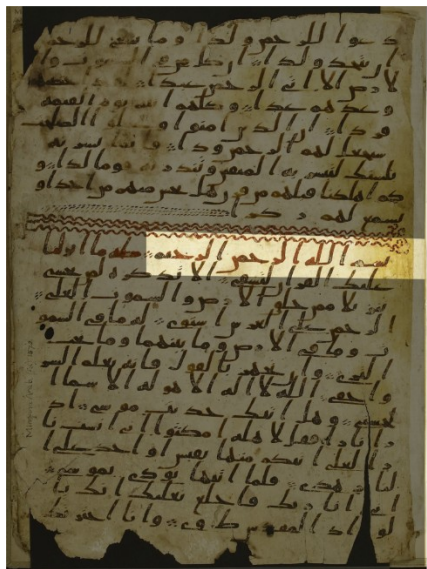 دعوا للرحمن ولدا وما ينبغي للرحمن
ان يتخذ ولدا ان كل من في السموت وا
لارض الا اتي الرحمن عبدا لقد احصيهم
وعدهم عدا وكلهم اتيه يوم القيمه
فردا ان الذين امنوا وعملوا الصلحت
سيجعل لهم الرحمن ودا فانما يسرنه
بلسنك لتبشر به المتقين وتنذر به قوما لدا و
كم اهلكنا قبلهم من قرن هل تحس منهم من احد او
تسمع لهم ركزا
بسم الله الرحمن الرحيم طه ما انزلنا
عليك القران لتشقى الا تذكره لمن يخشى
تنزيلا ممن خلق الارض والسموت العلى
الرحمن على العرش استوى له ما في السمو
ت وما في الارض وما بينهما وما تحت
الثرى وان تجهر بالقول فانه يعلم السر
واخفى الله لا اله الا هو له الاسما ا
لحسنى وهل اتيك حديث موسى اذ
را نارا فقل لاهله امكثوا اني انست نا
را لعلي اتيكم منها بقبس او اجد على ا
لنار هدى فلما اتيها نودي يموسى
اني انا ربك فاخلع نعليك انك با
لواد المقدس طوى وانا اخترتك